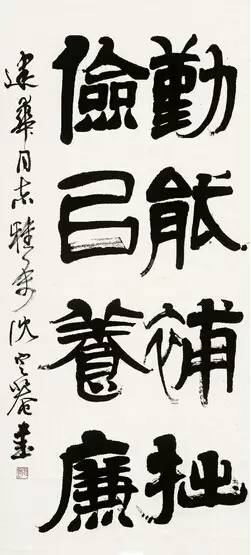 勤能補拙
儉已養廉
建華同志雅屬 沈定菴書